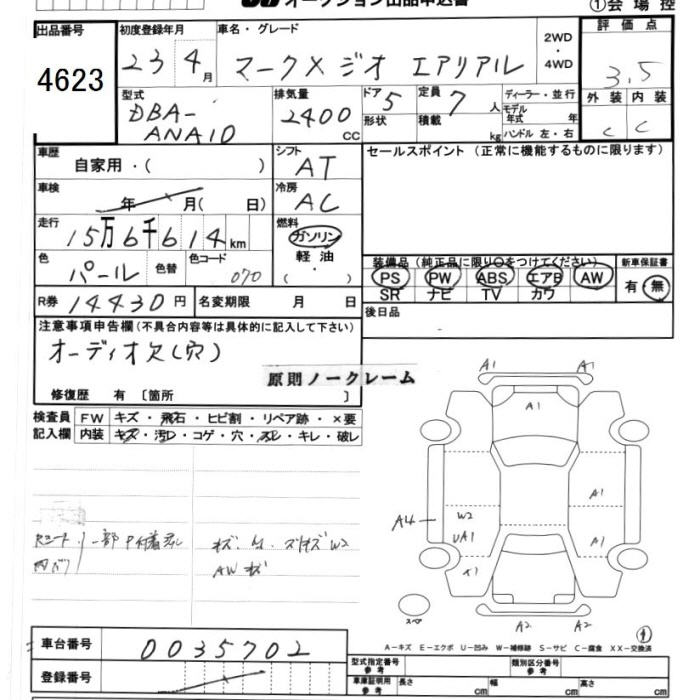 オークション出品申込書 ①会場控
出品番号 初度登録年月 車名・グレード 2WD ・ 4WD 評価点
4623 23 4月 マークX ジオ エアリアル 3.5
型式 排気量 ドア 定員 ディーラー・並行 外装 内装
DBA-ANA10 2400cc 5 7人 モデル年式 年 C C
形状 積載 kg ハンドル 左・右
車歴 自家用・( ) シフト AT セールスポイント (正常に機能するものに限ります)
車検 年 月( 日) 冷房 AC
走行 15万6千614km 燃料 ガソリン
軽油
・
( )
色 パール 色替 色コード 070 装備品 (純正品に限り○をつけてください) 新車保証書
PS PW ABS エアB AW 有・無
SR ナビ TV カワ
R券 14430円 名変期限 月 日 後日品
注意事項申告欄(不具合内容等は具体的に記入して下さい)
オーディオ欠(穴)
原則ノークレーム
修復歴 有 〔箇所 〕
検査員 FW キズ・飛石・ヒビ割・リペア跡・×要
記入欄 内装 キズ・汚レ・コゲ・穴・スレ・キレ・破レ
キズ・
W2
AW キズ
A1 A1
A1
A1
A4 W2
UA1 A1
A1
スペア A2 A2
車台番号 0035702
A-キズ E-エクボ U-凹み W-補修跡 S-サビ C-腐食 XX-交換済
登録番号
型式指定番号 参考 類別区分番号 参考
車庫証明用 参考 長さ cm 幅 cm 高さ cm